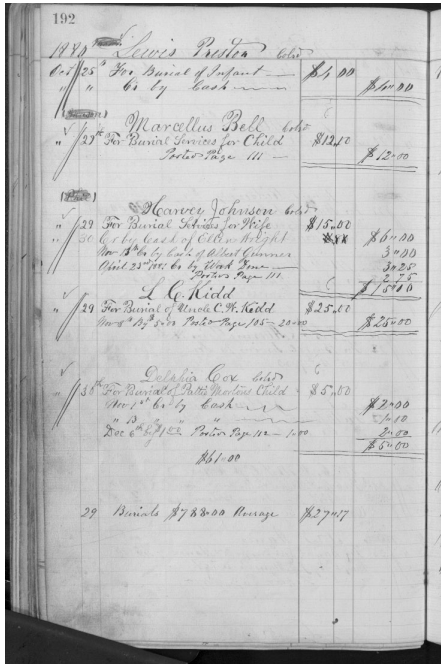 192
1880 Lewis Preston Cold
Oct 25th For Burial of Infant $4.00
" " Cr by Cash $4.00
Marcellus Bell Cold
" 29th For Burial Services for Child $12.00
Posted Page 111 $12.00
Harvey Johnson Cold
" 29 For Burial Services for Wife $15.00
30 Cr by Cash of Ellen Wright $6.00
Nov 13th Cr by Cash of Albert Gunner 3.00
April 23rd 1881 Cr by Work Done 3.25
Posted Page 111 2.75
$15.00
L. C. Kidd
" 29 For Burial of Uncle C. W. Kidd $25.00
Nov 8th By 5.00 Posted Page 105 - 20.00 $25.00
Delphia Cox Cold
" 30th For Burial of Child $5.00
Nov 1st Cr by Cash $2.00
" " " " 1.00
Dec 6th By $1.00 Posted Page 112 - 1.00 2.00
$5.00
$61.00
29 Burials $788.00 Average $27.17